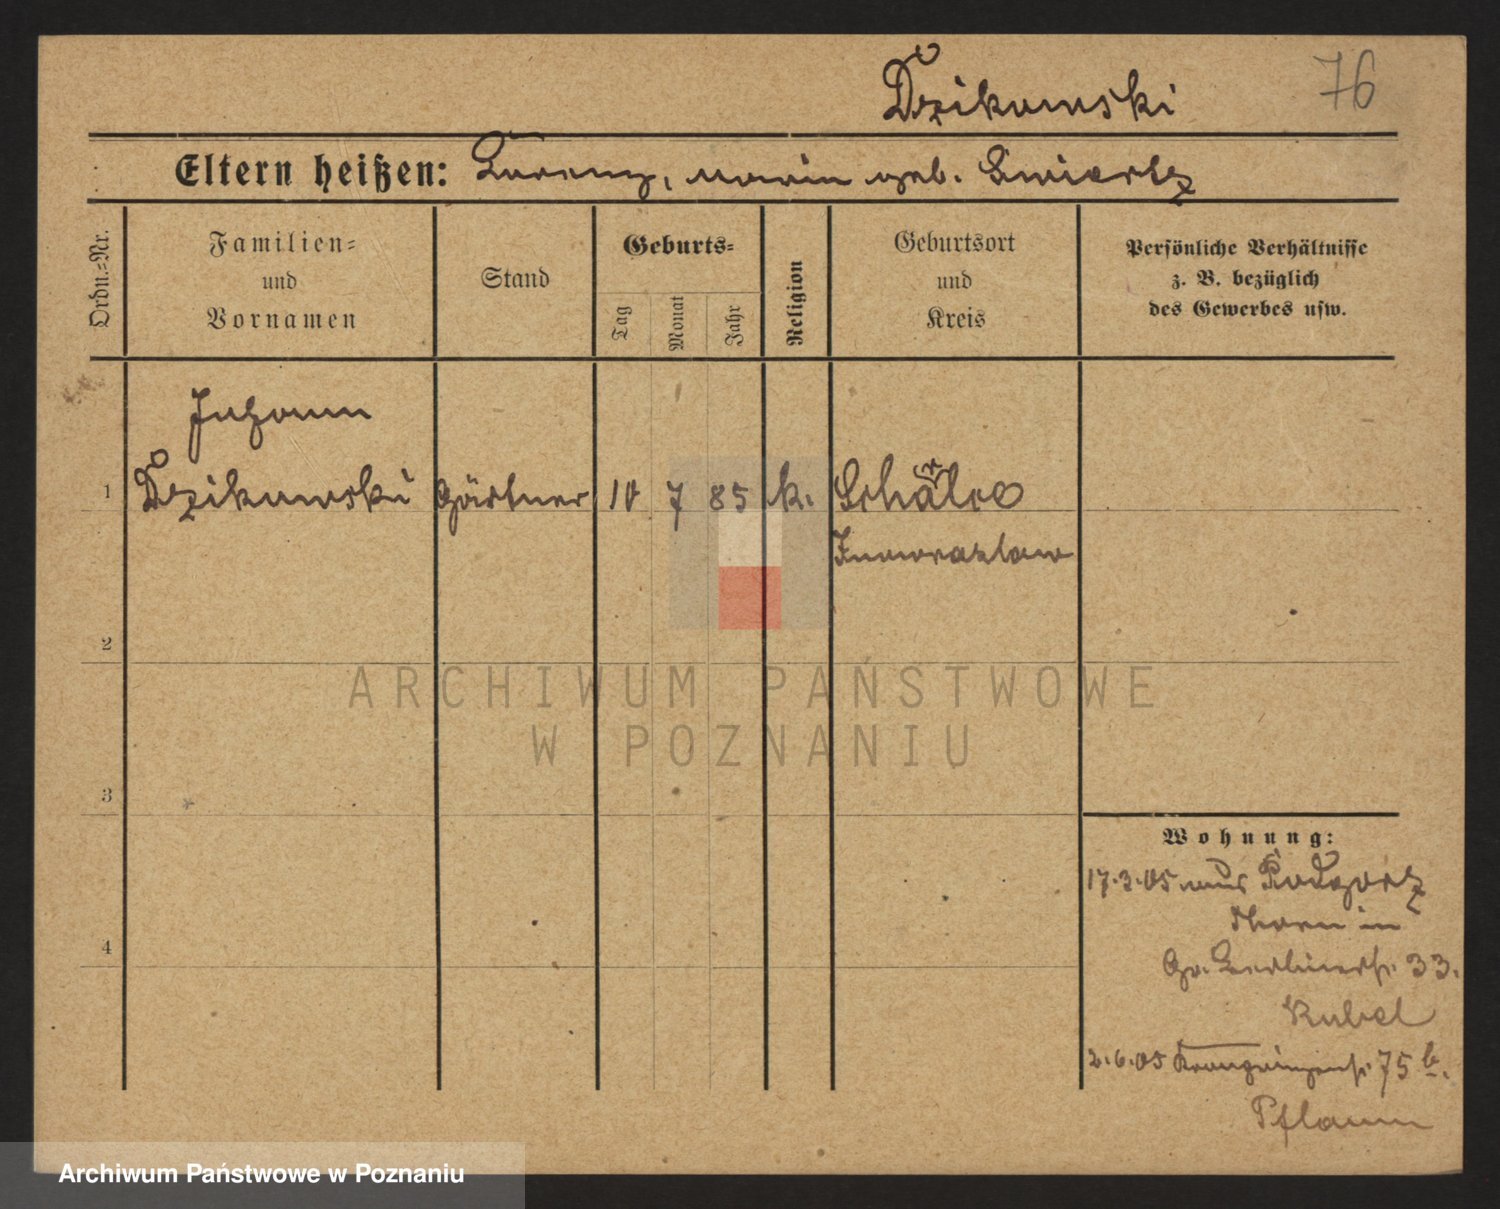 Dzikowski
76
Eltern heißen: Lorenz, Maria geb. Kwiertz
Ordn.=Nr.
Familien=
und
Vornamen
Stand
Geburts=
Tag
Monat
Jahr
Religion
Geburtsort
und
Kreis
Persönliche Verhältnisse
z. B. bezüglich
des Gewerbes usw.
Johann
1 Dzikowski Gärtner 10 7 85 k.
Inowrazlaw
2
3
4
ARCHIWUM PAŃSTWOWE
W POZNANIU
Wohnung:
17.3.05 aus Podgorz
Thorn in
Gr. Berlinerstr. 33.
Rubel
2.6.05 Kronprinzenstr. 75 b.
Pflaum
Archiwum Państwowe w Poznaniu